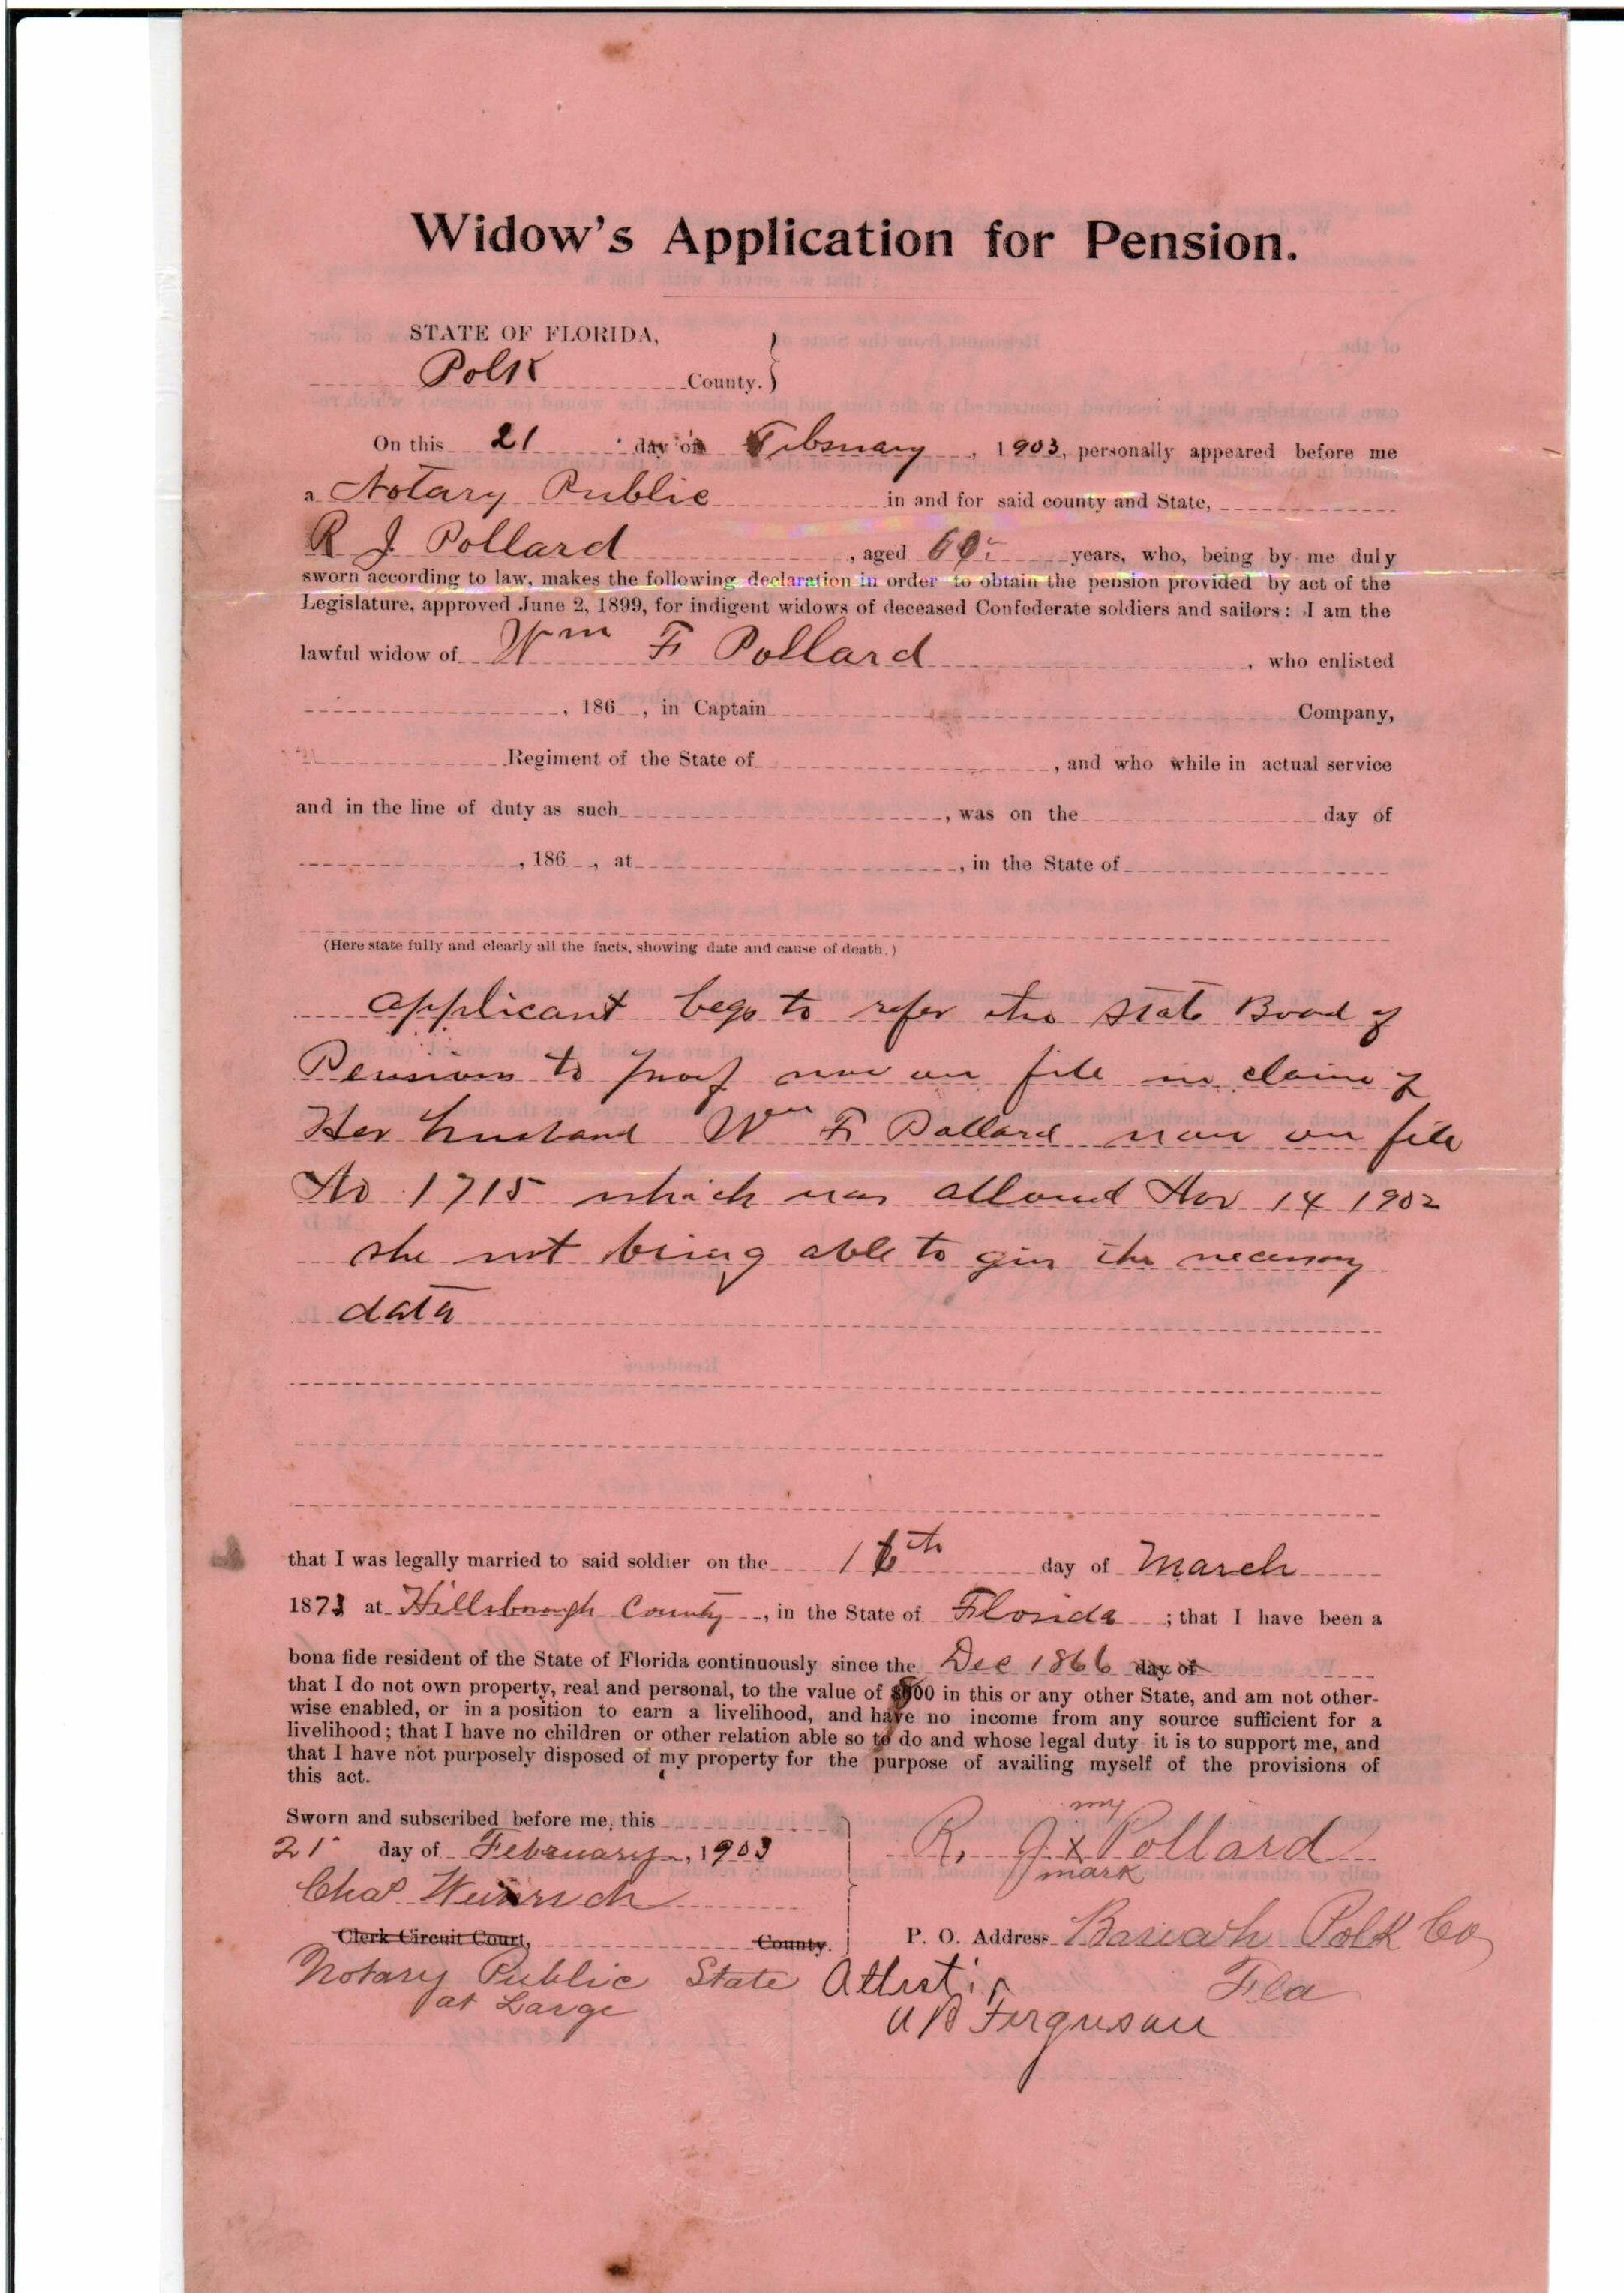 Widow's Application for Pension.
STATE OF FLORIDA,
Polk County.
On this 21 day of February, 1903, personally appeared before me
a Notary Public in and for said county and State,
R J Pollard, aged years, who, being by me duly
sworn according to law, makes the following declaration in order to obtain the pension provided by act of the
Legislature, approved June 2, 1899, for indigent widows of deceased Confederate soldiers and sailors: I am the
lawful widow of Wm F Pollard, who enlisted
, 186 , in Captain Company,
Regiment of the State of , and who while in actual service
and in the line of duty as such , was on the day of
, 186 , at , in the State of
(Here state fully and clearly all the facts, showing date and cause of death.)
applicant begs to refer the State Board of
Pensions to proof now on file in claim of
Her husband Wm F Pollard now on file
No 1715 which was allowed Nov 14 1902
she not being able to give the necessary
data
that I was legally married to said soldier on the 16th day of March
1873 at Hillsborough County, in the State of Florida; that I have been a
bona fide resident of the State of Florida continuously since the Dec 1866 day of
that I do not own property, real and personal, to the value of in this or any other State, and am not other-
wise enabled, or in a position to earn a livelihood, and have no income from any source sufficient for a
livelihood; that I have no children or other relation able so to do and whose legal duty it is to support me, and
that I have not purposely disposed of my property for the purpose of availing myself of the provisions of
this act.
Sworn and subscribed before me, this
21 day of February, 1903
Chas
Clerk Circuit Court, County.
Notary Public State
at Large
my
R. J x Pollard
mark
P. O. Address Polk Co
Fla
Attest:
A B Ferguson